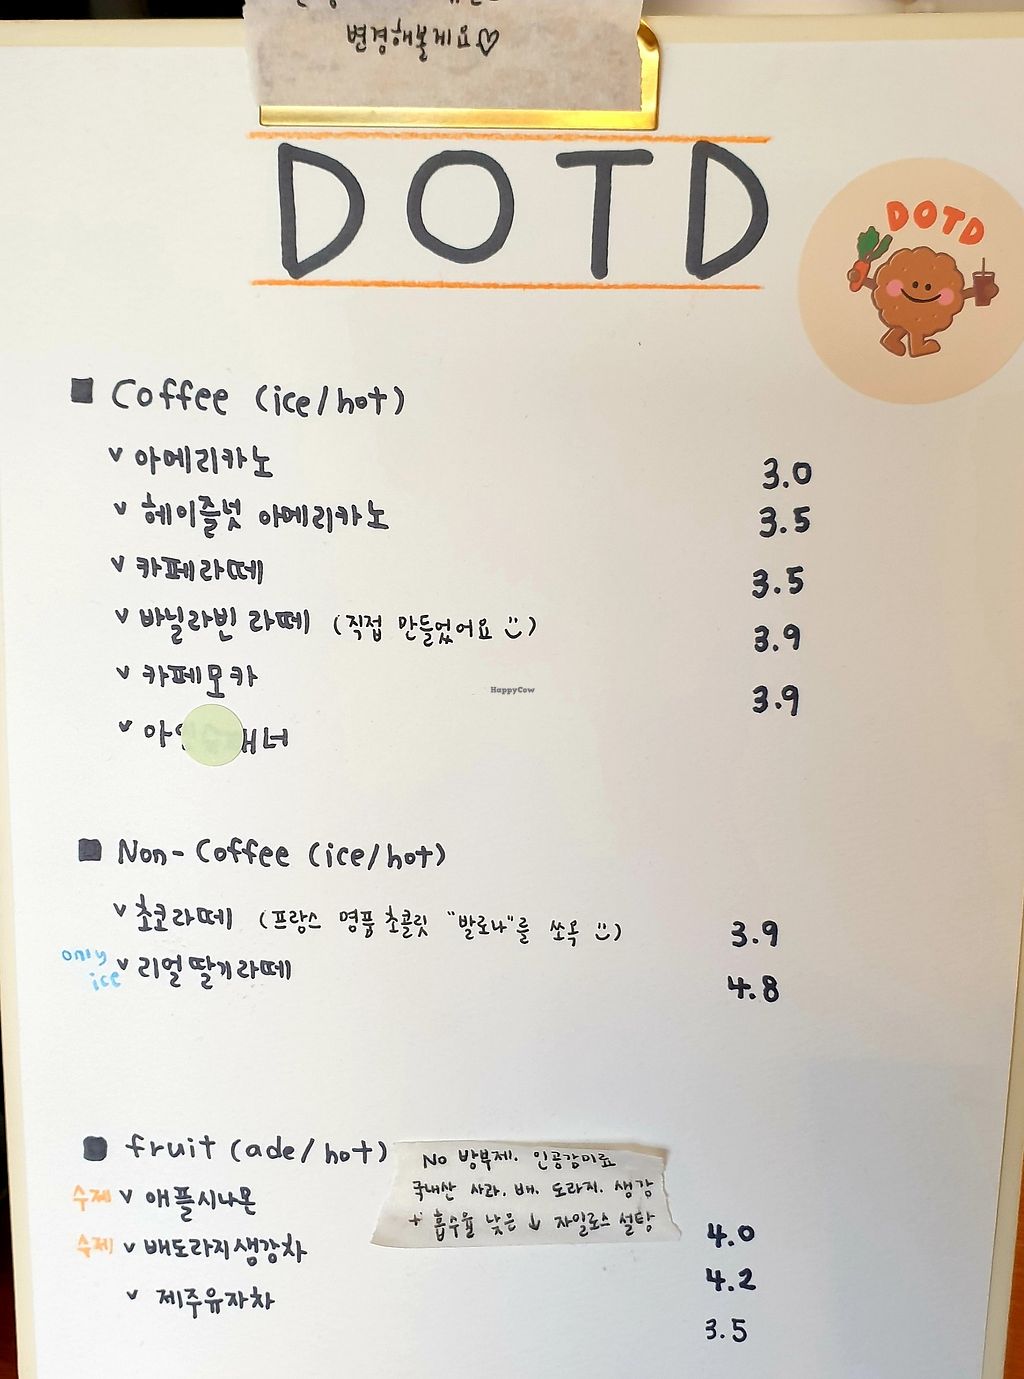 변경해볼게요♡
DOTD
DOTD
■ Coffee (ice/hot)
v 아메리카노 3.0
v 헤이즐넛 아메리카노 3.5
v 카페라떼 3.5
v 바닐라빈 라떼 (직접 만들었어요 :)) 3.9
v 카페모카 3.9
v 아 너
HappyCow
■ Non-Coffee (ice/hot)
v 초코라떼 (프랑스 명품 초콜릿 "발로나"를 쏘옥 :)) 3.9
only ice v 리얼딸기라떼 4.8
■ fruit (ade/hot)
No 방부제. 인공감미료
국내산 사과. 배. 도라지. 생강
+ 흡수율 낮은 ↓ 자일로스 설탕
수제 v 애플시나몬 4.0
수제 v 배도라지생강차 4.2
v 제주유자차 3.5